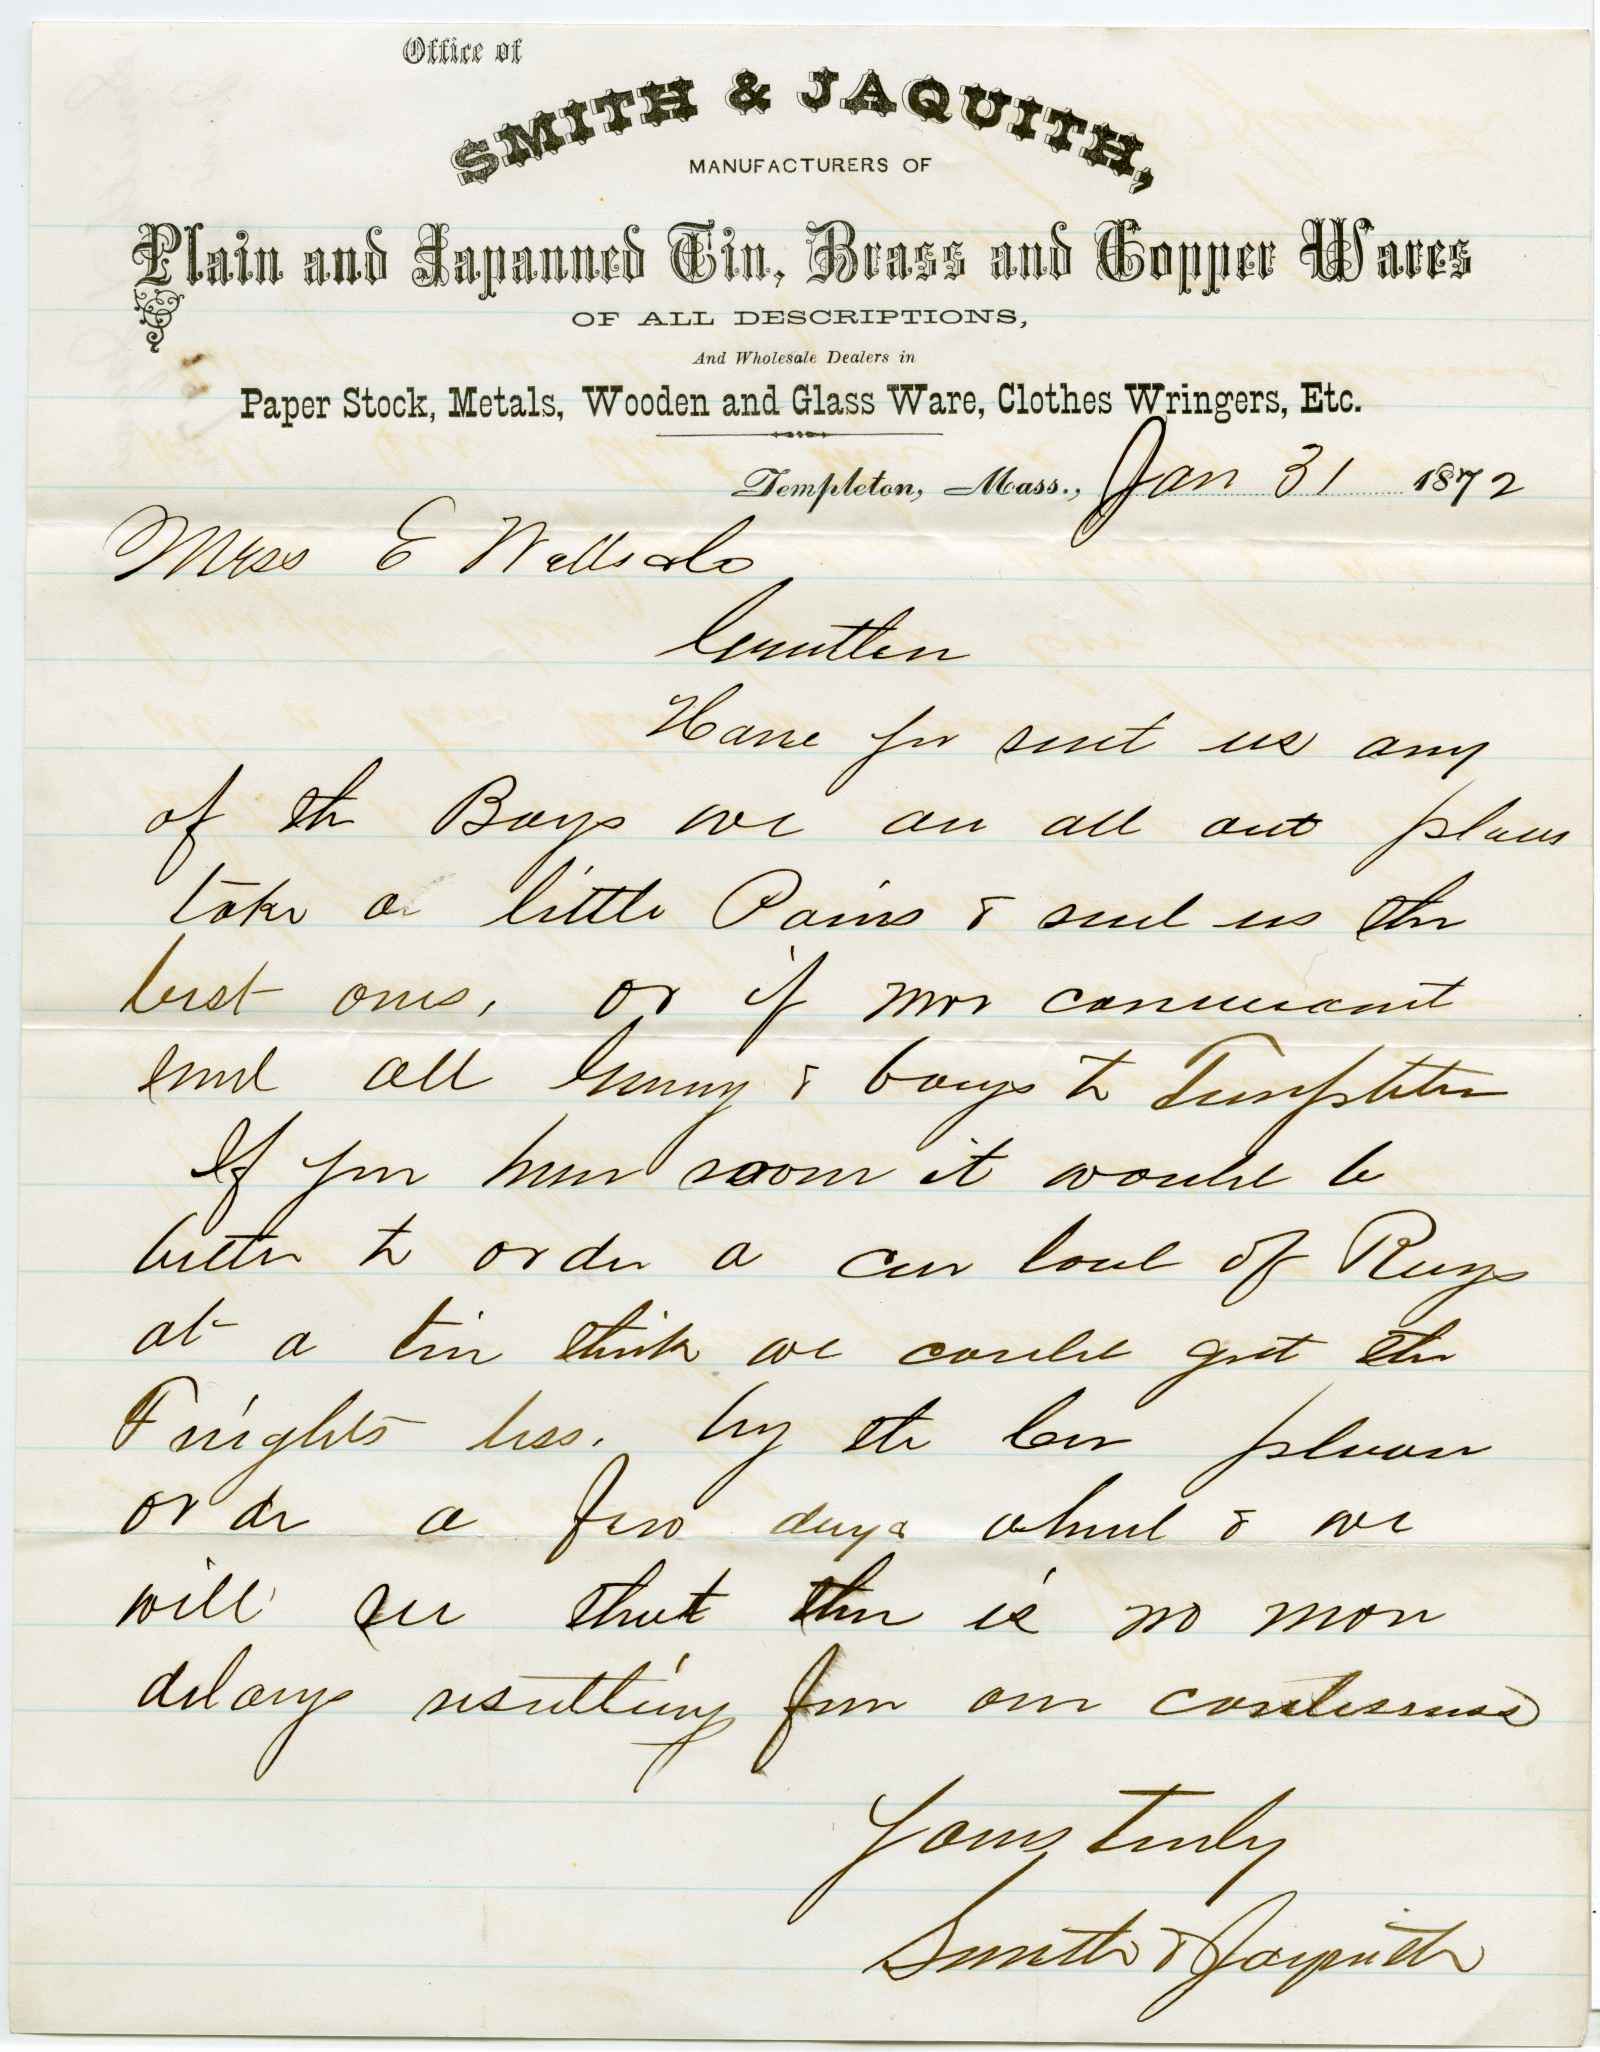 Office of
SMITH & JAQUITH,
MANUFACTURERS OF
Plain and Japanned Tin, Brass and Copper Wares
OF ALL DESCRIPTIONS,
And Wholesale Dealers in
Paper Stock, Metals, Wooden and Glass Ware, Clothes Wringers, Etc.
Templeton, Mass., Jan 31 1872
Mess E Wells & Co
Gentlen
Have you sent us any
of the Bags we are all out please
take a little Pains & send us the
best ones, or if more convenient
send all Gunny & bags to Templeton
If you have room it would be
better to order a car load of Rags
at a time think we could get the
Freights less. by the Car please
order a few days ahead & we
will see that there is no more
delays resulting from our carelessness
Yours truly
Smith & Jaquith